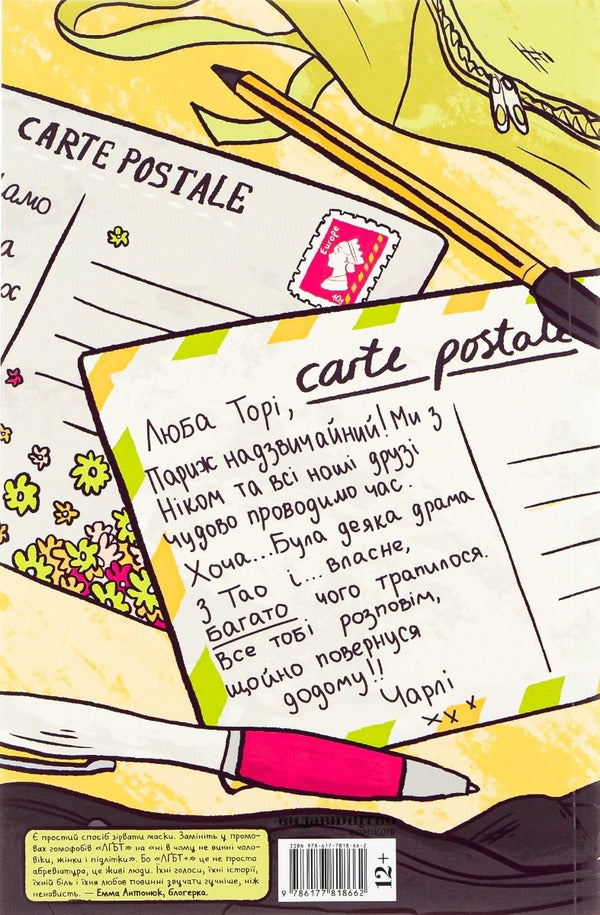 CARTE POSTALE
амо
а
х
Europe
carte postale
Люба Торі,
Париж надзвичайний! Ми з
Ніком та всі наші друзі
чудово проводимо час.
Хоча... Була деяка драма
з Тао і... власне,
багато чого трапилося.
Все тобі розповім,
щойно повернуся
додому!!
Чарлі
x x x
видавництво
комікси
Є простий спосіб зірвати маски. Замініть у промо-
вах гомофобів «ЛГБТ» на «ні в чому не винні чоло-
віки, жінки і підлітки». Бо «ЛГБТ+» це не просто
абревіатура, це живі люди. Їхні голоси, їхні історії,
їхній біль і їхня любов повинні звучати гучніше, ніж
ненависть. — Емма Антонюк, блогерка.
ISBN 978-617-7818-66-2
9 786177 818662
12+